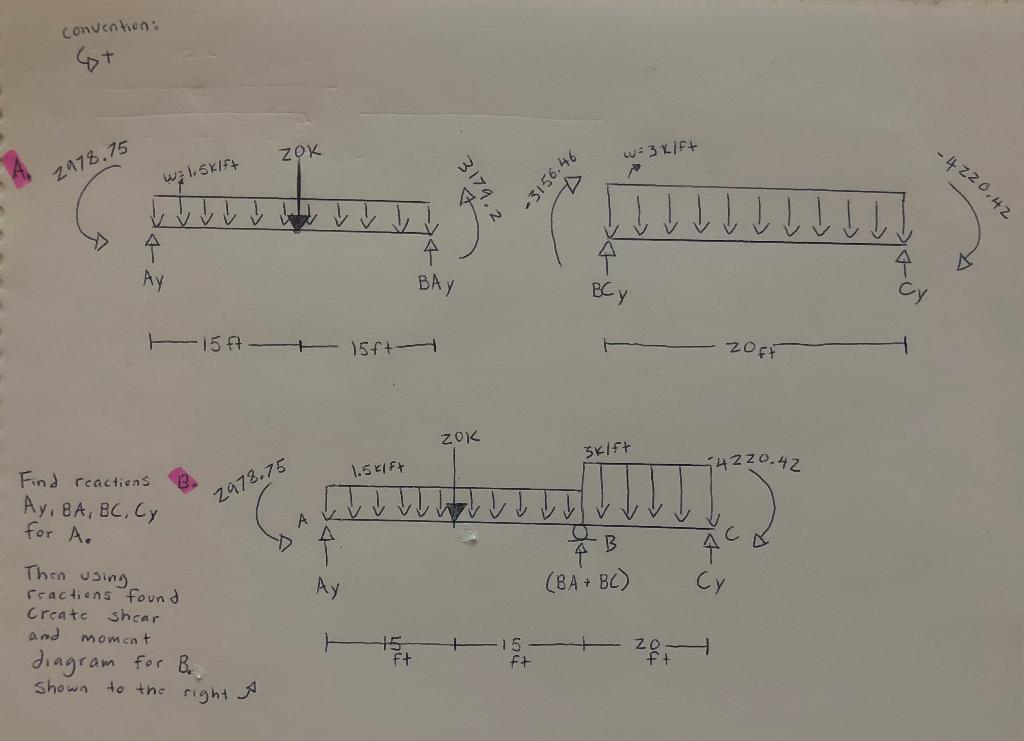 convention:
+
A.
2978.75
w=1.5k/ft
20K
3179.2
-3156.46
w=3k/ft
-4220.42
Ay
BAy
BCy
Cy
15ft
15ft
20ft
Find reactions
Ay, BA, BC, Cy
for A.
Then using
reactions found
Create shear
and moment
diagram for B.
shown to the right
B.
2978.75
1.5k/ft
20K
3k/ft
-4220.42
A
B
C
Ay
(BA + BC)
Cy
15
ft
15
ft
20
ft